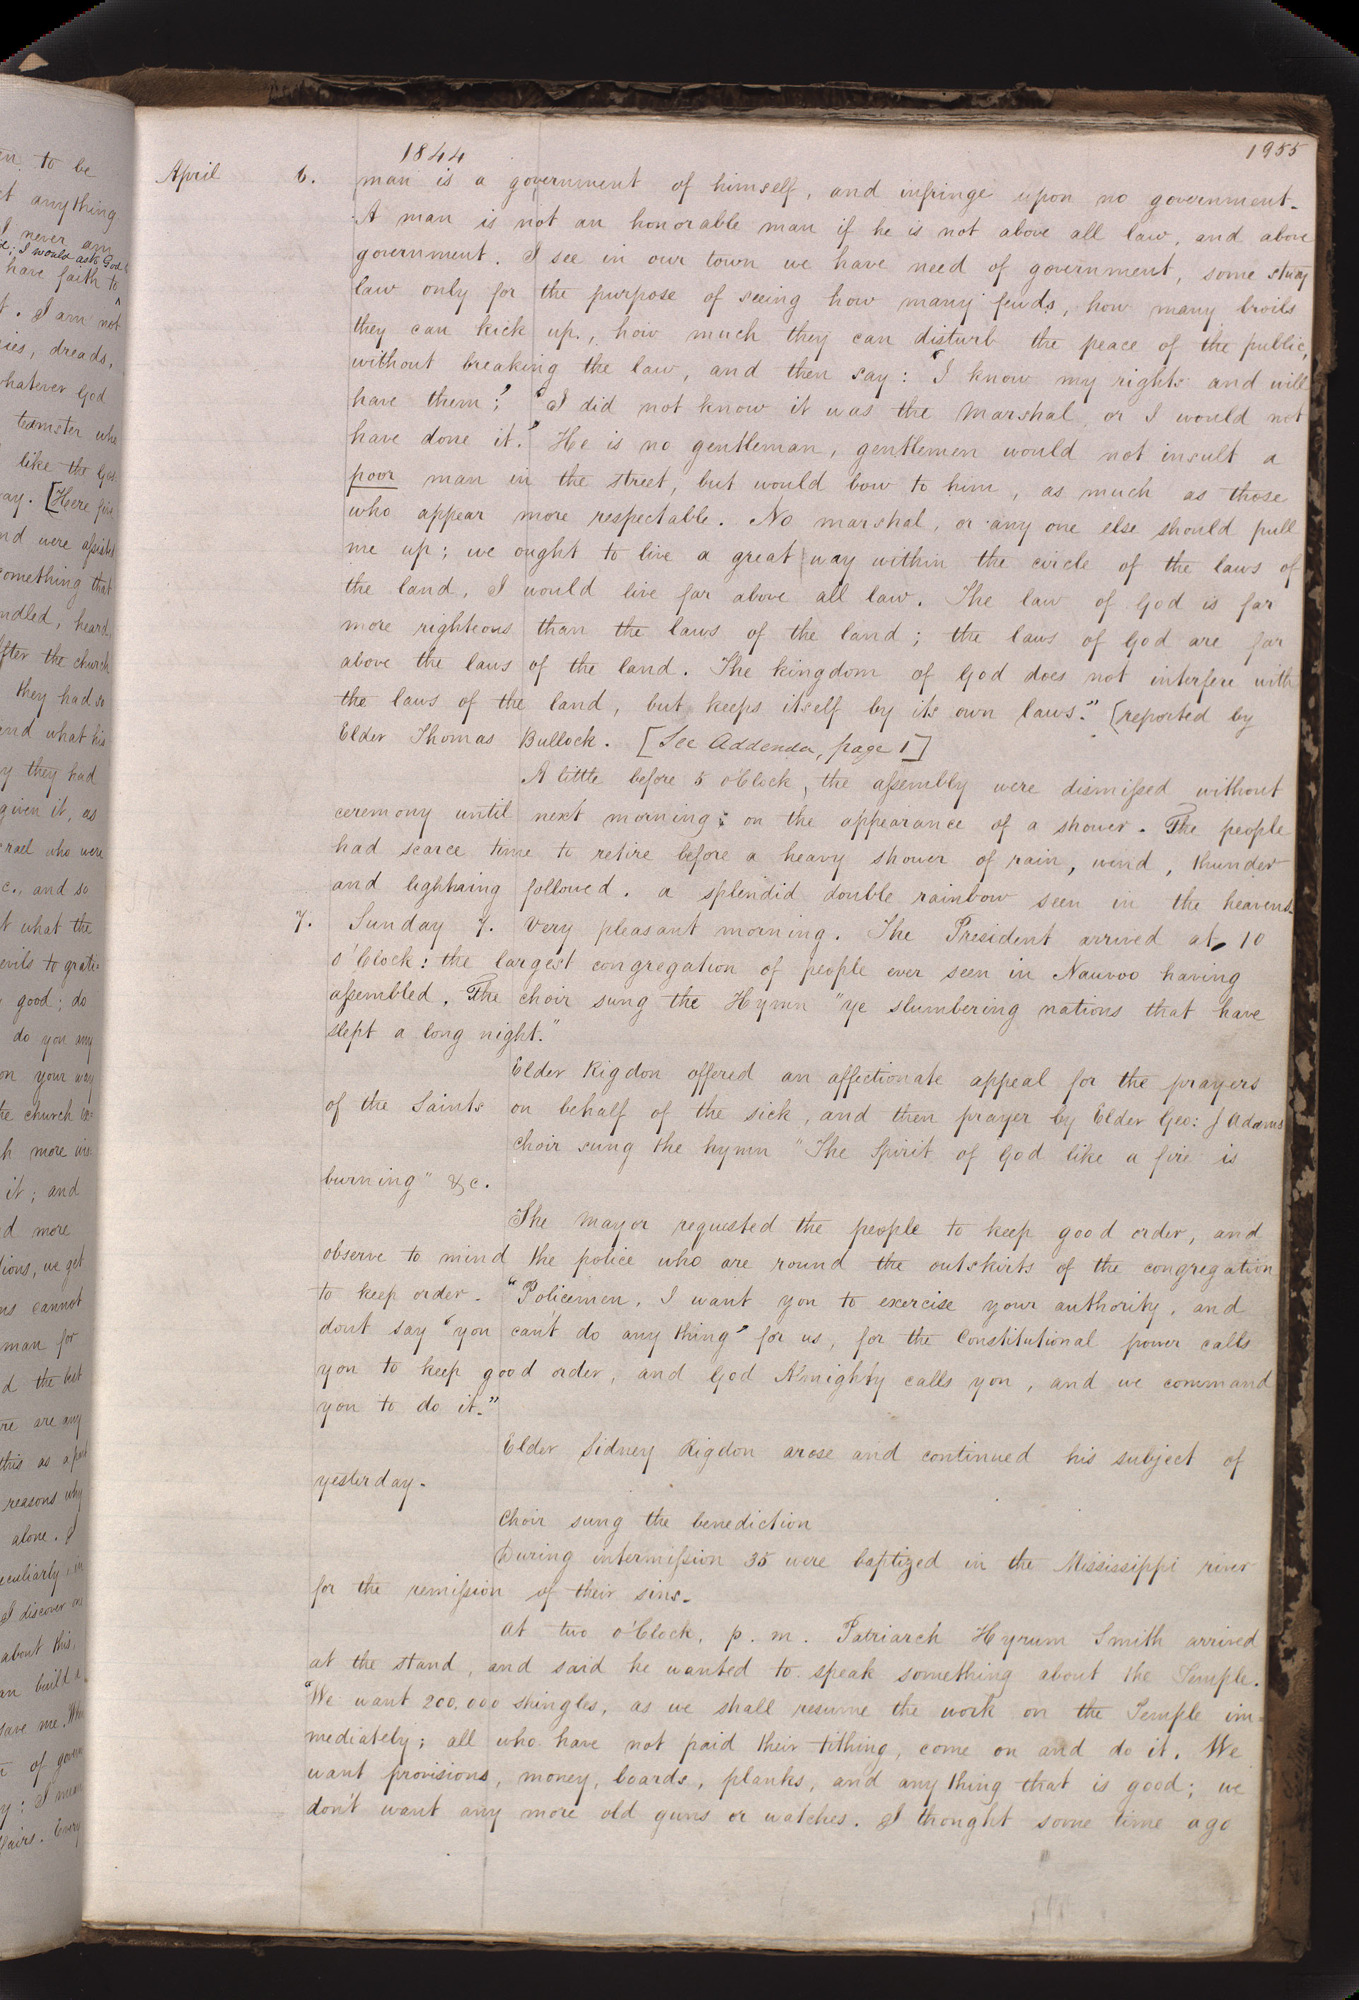 en to be
ct anything
I never am
d; I would ask God
have faith to
t. I am not
ies, dreads,
whatever God
teamster who
like the
ay. [Here
nd were assisted
something that
ndled, heard,
fter the church
they had so
end what his
y they had
given it, as
rael who were
c., and so
t what the
evils to grati=
good; do
do you my
on your way
the church
h more
it; and
d more
tions, we get
ns cannot
man for
d the but
re are any
this as a part
reasons why
alone. I
eculiarly,
I discover
about this,
an build a
save me.
of
y: I mean
fairs. Every
1844
1955
April 6. man is a government of himself, and infringe upon no government.
A man is not an honorable man if he is not above all law, and above
government. I see in our town we have need of government, some study
law only for the purpose of seeing how many feuds, how many broils
they can kick up., how much they can disturb the peace of the public,
without breaking the law, and then say: 'I know my rights and will
have them;' 'I did not know it was the Marshal or I would not
have done it.' He is no gentleman, gentlemen would not insult a
poor man in the street, but would bow to him, as much as those
who appear more respectable. No marshal, or any one else should pull
me up; we ought to live a great way within the circle of the laws of
the land. I would live far above all law. The law of God is far
more righteous than the laws of the land; the laws of God are far
above the laws of the land. The kingdom of God does not interfere with
the laws of the land, but keeps itself by its own laws." (reported by
Elder Thomas Bullock. [See Addenda, page 1]
A little before 5 o'Clock, the assembly were dismissed without
ceremony until next morning; on the appearance of a shower. The people
had scarce time to retire before a heavy shower of rain, wind, thunder
and lightning followed. a splendid double rainbow seen in the heavens.
7. Sunday 7. Very pleasant morning. The President arrived at 10
o'Clock: the largest congregation of people ever seen in Nauvoo having
assembled. The choir sung the Hymn "ye slumbering nations that have
slept a long night."
Elder Rigdon offered an affectionate appeal for the prayers
of the Saints on behalf of the sick, and then prayer by Elder Geo: J Adams
choir sung the hymn "The Spirit of God like a fire is
burning" &c.
The Mayor requested the people to keep good order, and
observe to mind the police who are round the outskirts of the congregation
to keep order. "Policemen, I want you to exercise your authority, and
dont say 'you can't do any thing' for us, for the Constitutional power calls
you to keep good order, and God Almighty calls you, and we command
you to do it."
Elder Sidney Rigdon arose and continued his subject of
yesterday.
Choir sung the benediction
During intermission 35 were baptized in the Mississippi river
for the remission of their sins.
At two o'Clock, p. m. Patriarch Hyrum Smith arrived
at the stand, and said he wanted to speak something about the Temple.
"We want 200,000 shingles, as we shall resume the work on the Temple im-
mediately; all who have not paid their tithing, come on and do it. We
want provisions, money, boards, planks, and any thing that is good; we
don't want any more old guns or watches. I thought some time ago